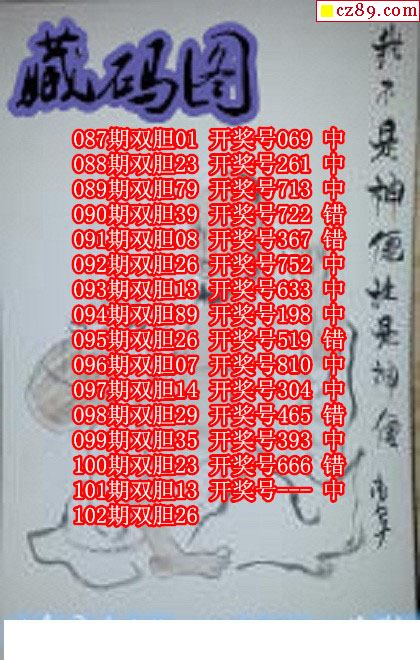 cz89.com
藏码图
087期双胆01 开奖号069 中
088期双胆23 开奖号261 中
089期双胆79 开奖号713 中
090期双胆39 开奖号722 错
091期双胆08 开奖号367 错
092期双胆26 开奖号752 中
093期双胆13 开奖号633 中
094期双胆89 开奖号198 中
095期双胆26 开奖号519 错
096期双胆07 开奖号810 中
097期双胆14 开奖号304 中
098期双胆29 开奖号465 错
099期双胆35 开奖号393 中
100期双胆23 开奖号666 错
101期双胆13 开奖号--- 中
102期双胆26
我不是神仙
是神仙